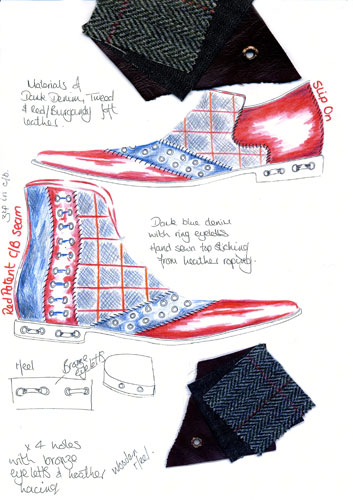 Materials of
Dark Denim, Tweed
& Red/Burgundy soft
leather.
Slip On
Red Patent C/B Seam
Dark blue denim
with ring eyeletts
Hand sewn top stiching
from leather roping.
Heel
Bronze
eyeletts
x 4 holes
with bronze
eyeletts & leather
lacing
wooden
Heel.